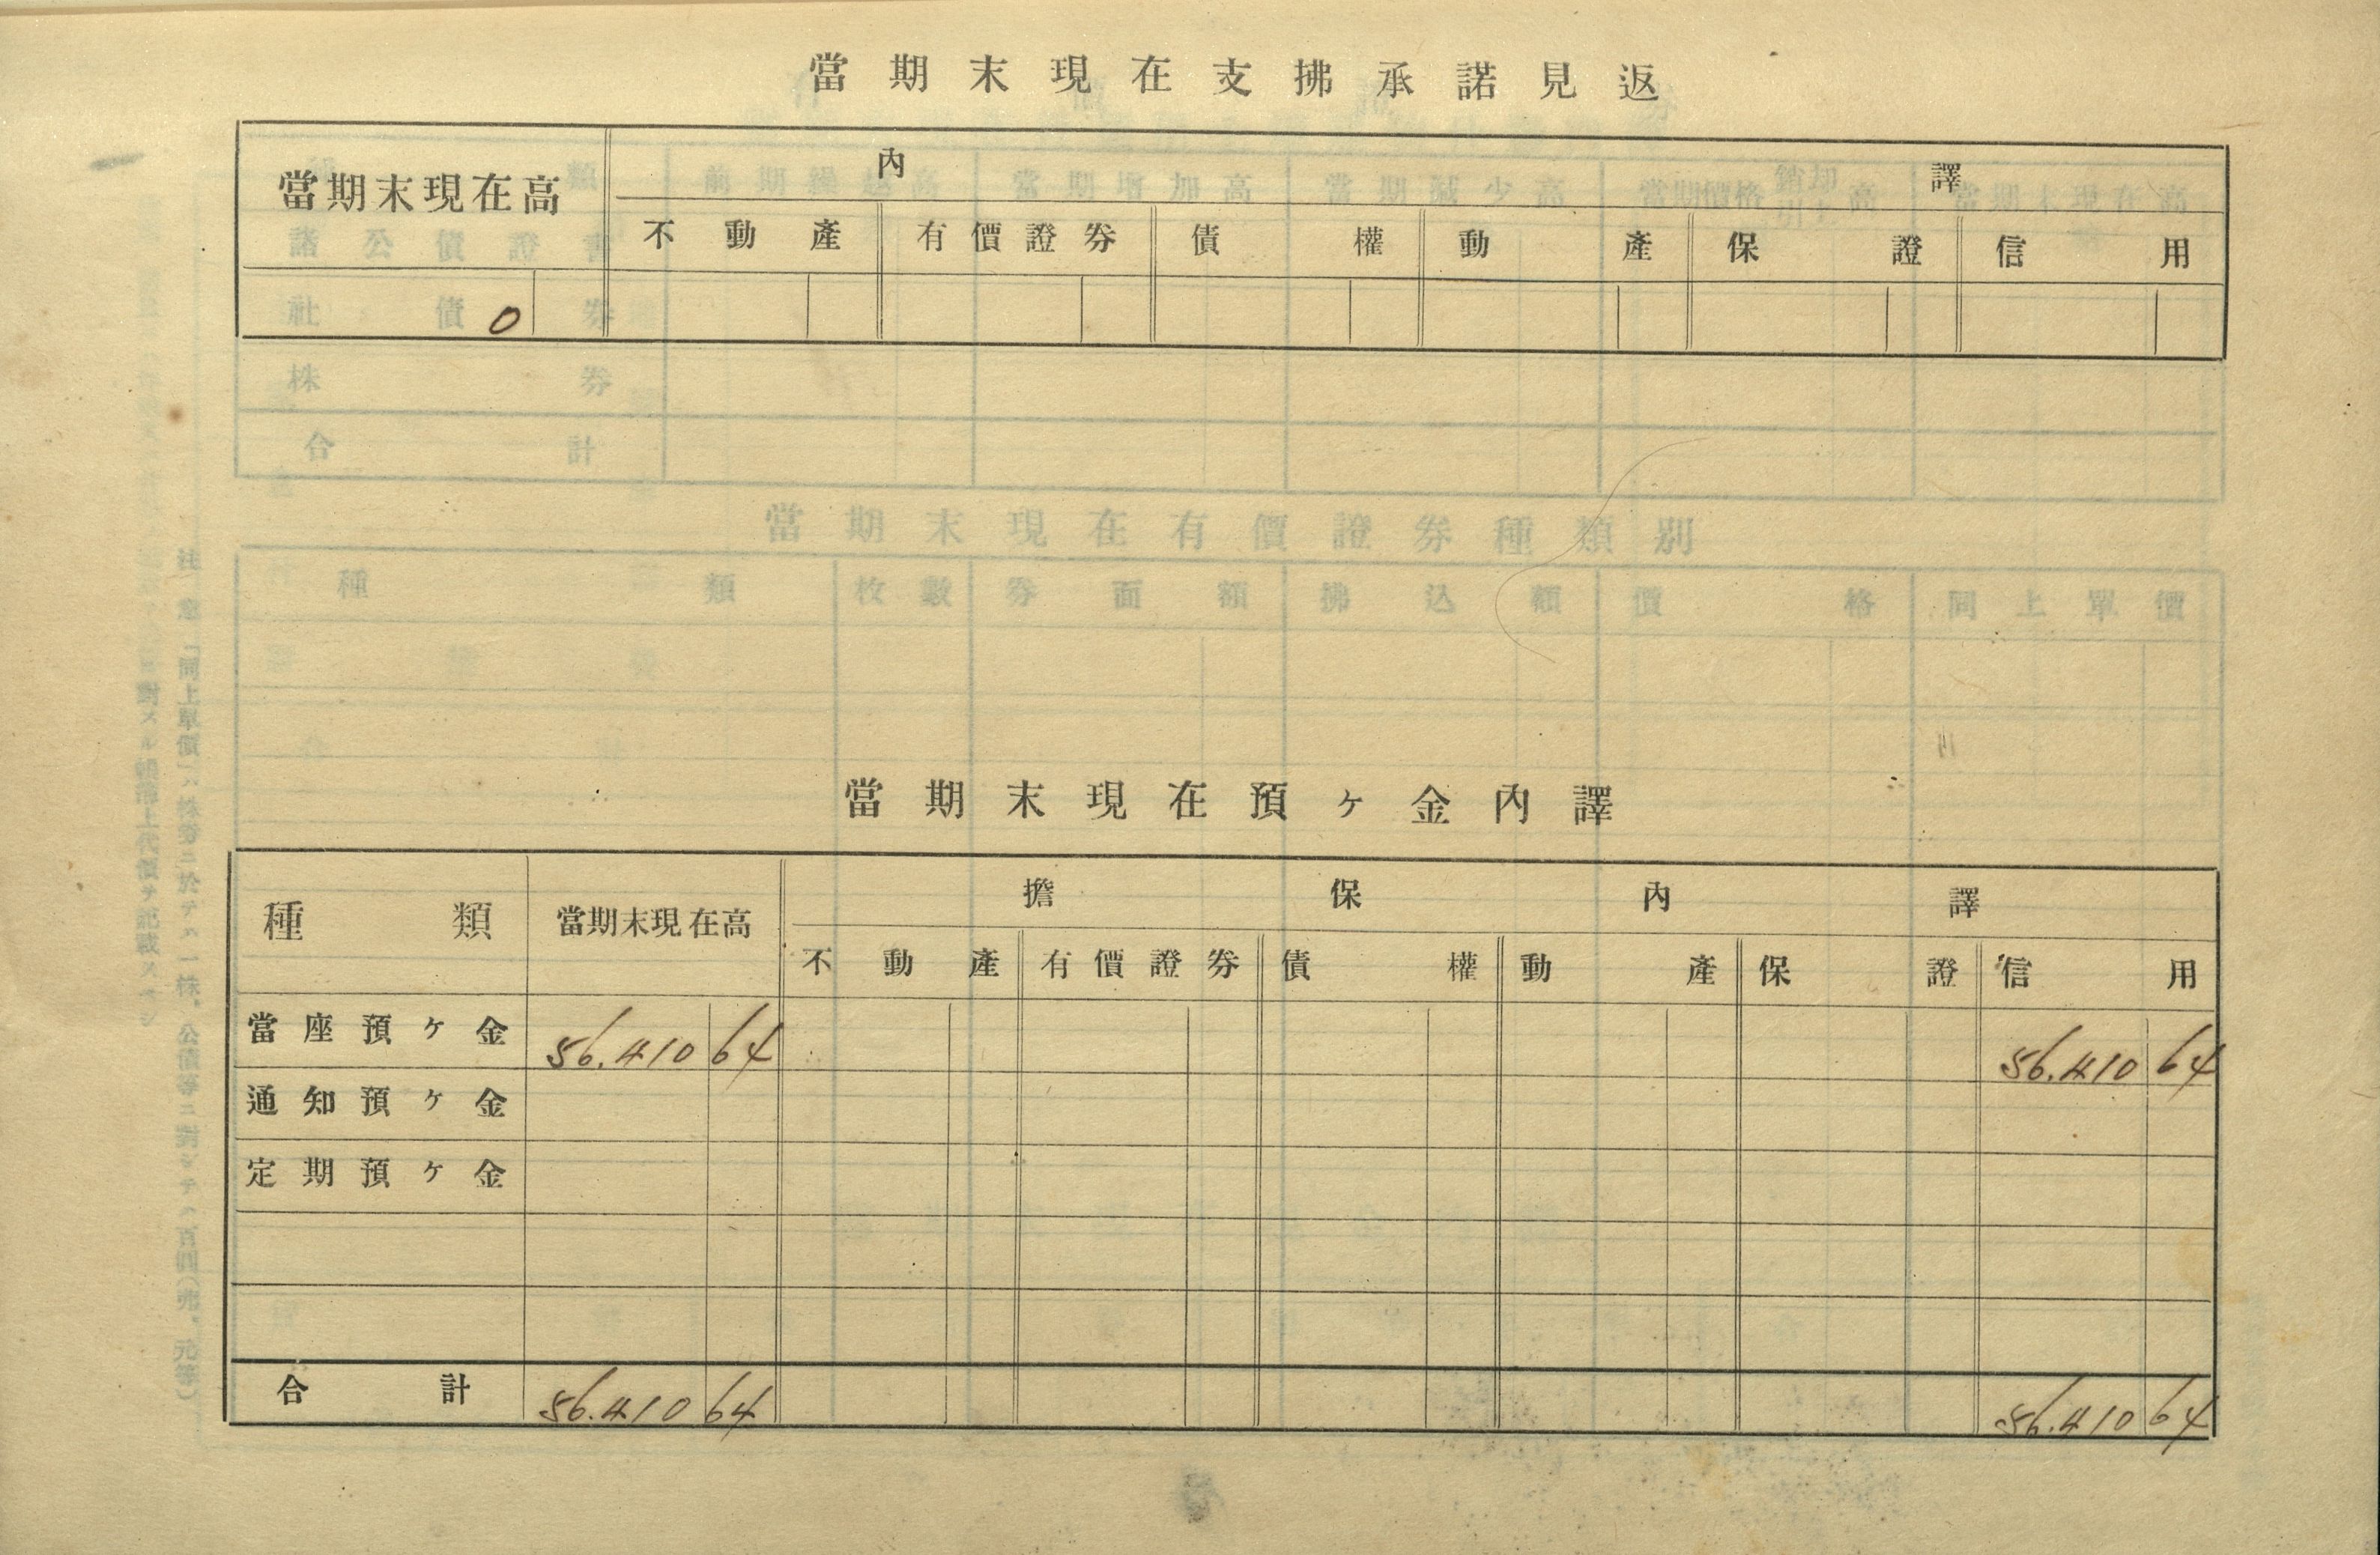 當期末現在支拂承諾見返
當期末現在高 內譯
不動產 有價證券 債權 動產 保證 信用
0
當期末現在預ヶ金內譯
種類 當期末現在高 擔保內譯
不動產 有價證券 債權 動產 保證 信用
當座預ヶ金 56.410 64 56.410 64
通知預ヶ金
定期預ヶ金
合計 56.410 64 56.410 64